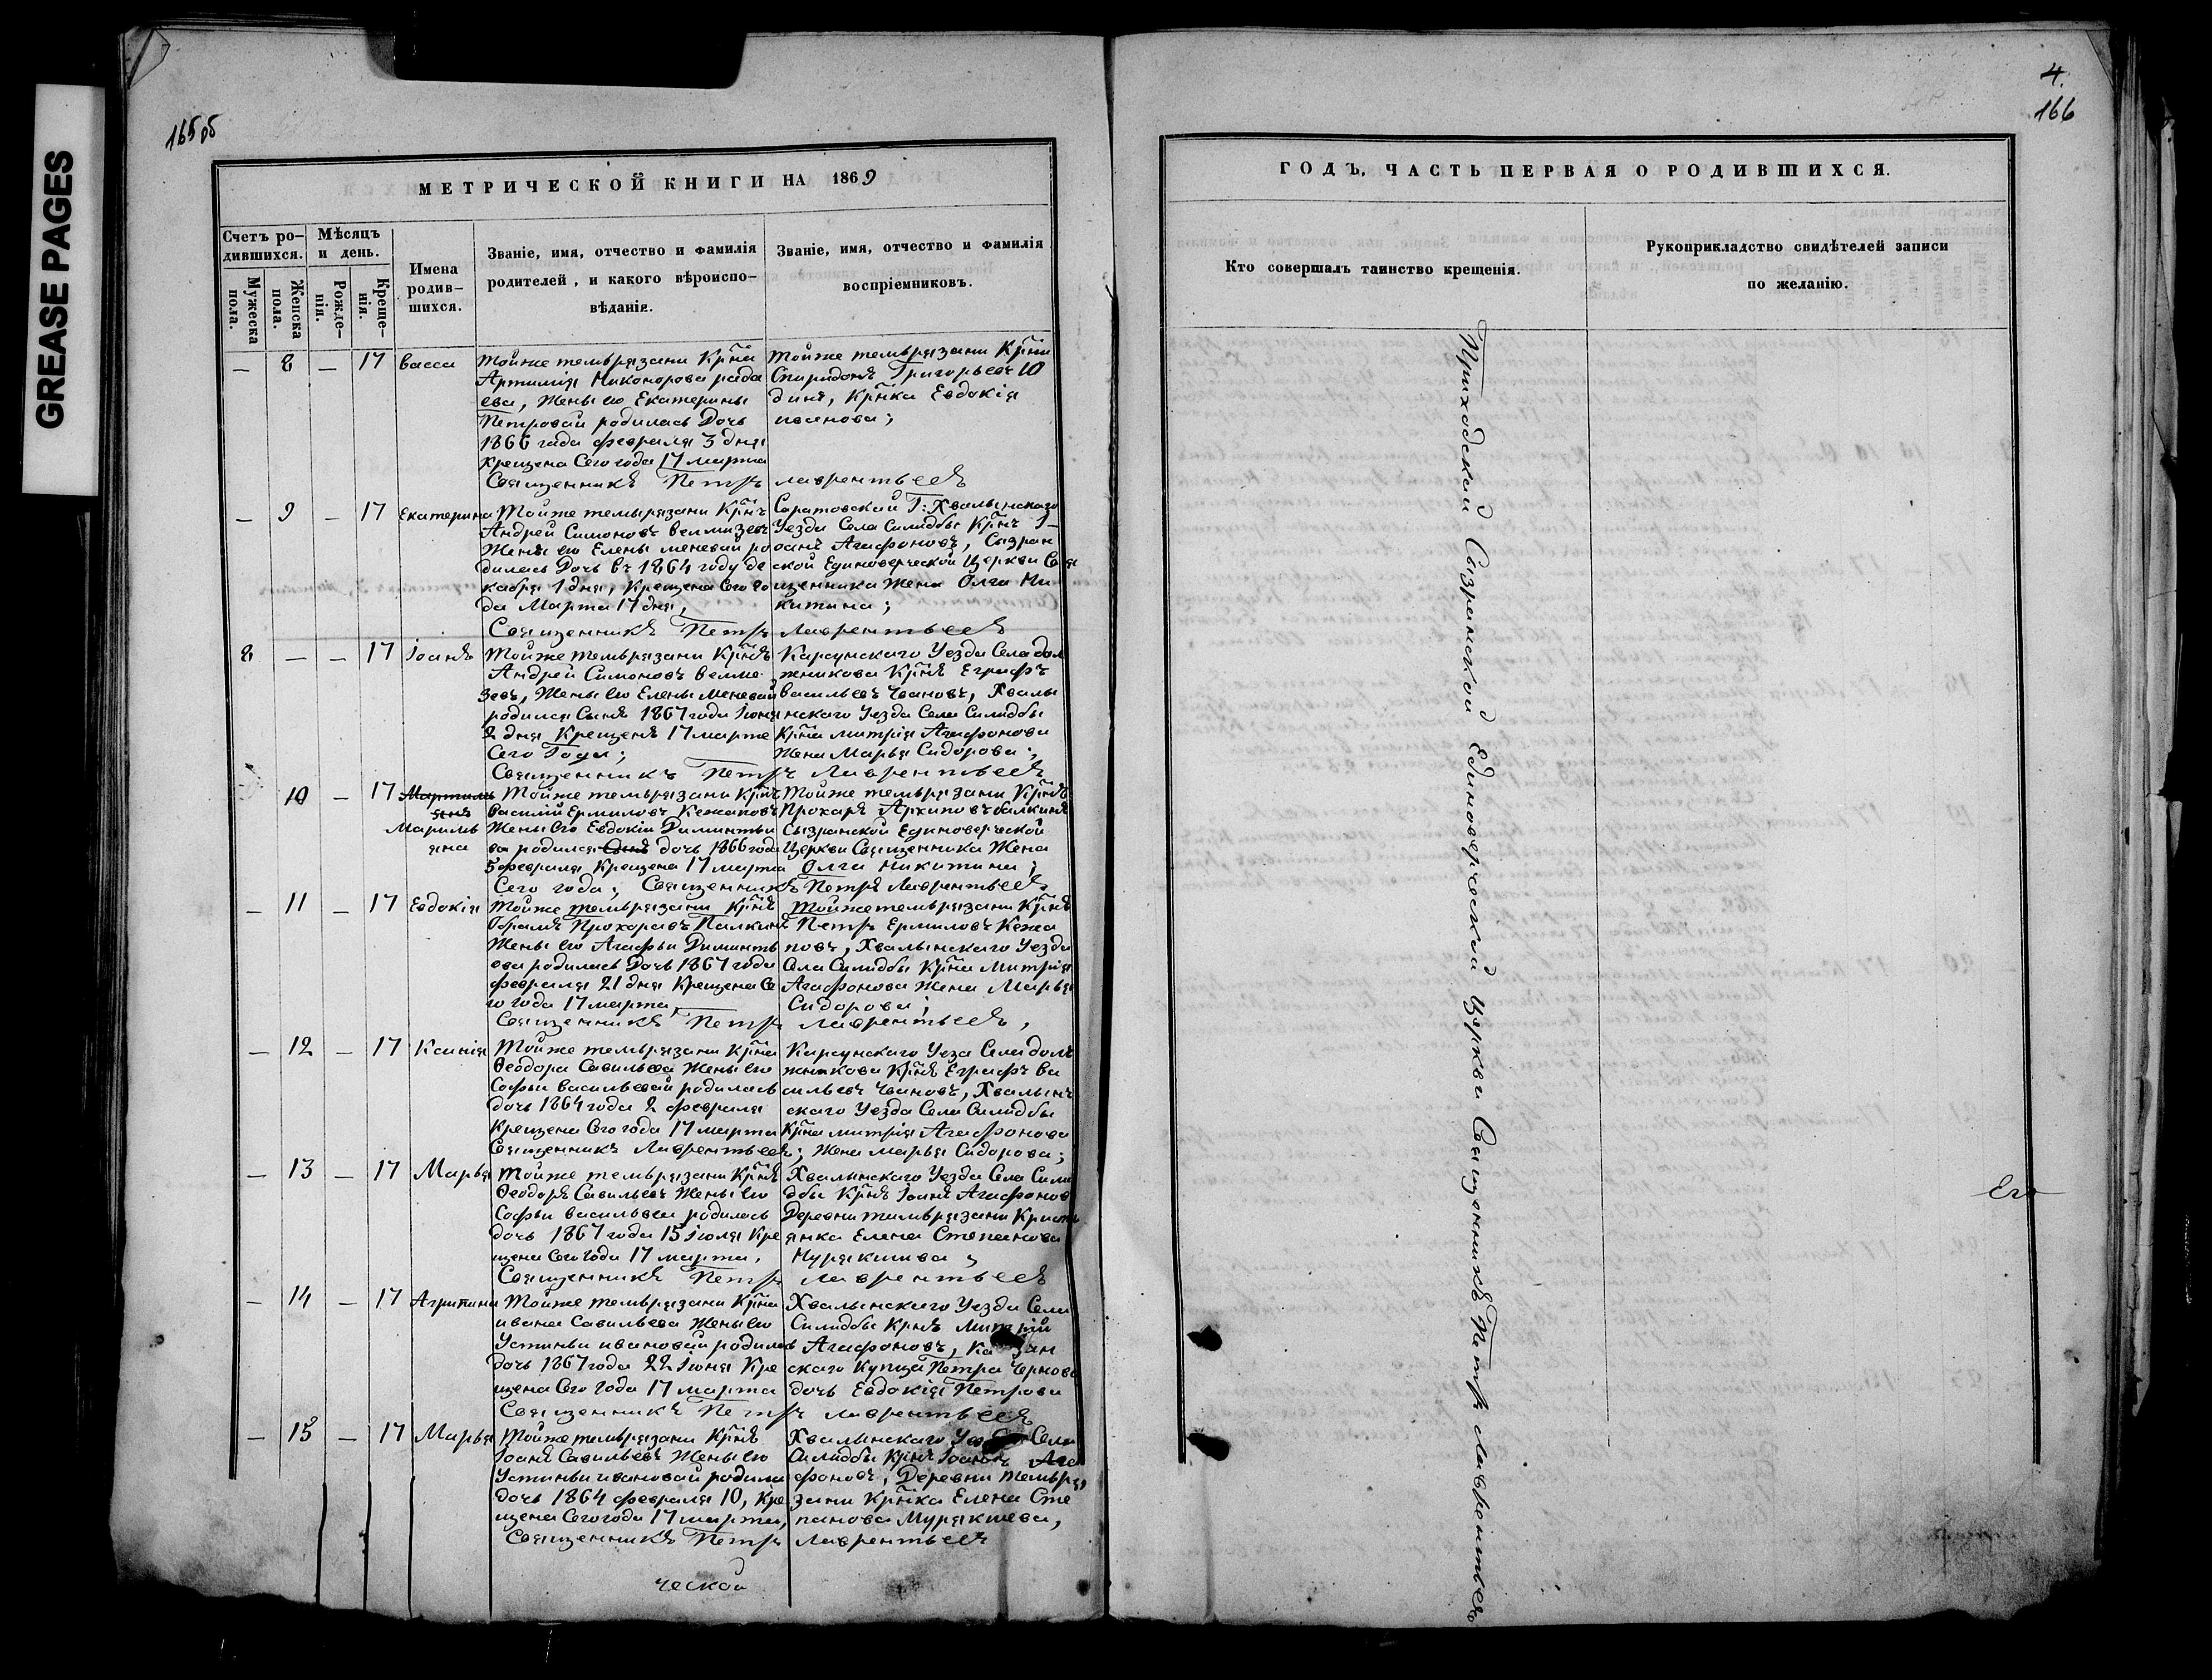 GREASE PAGES
165об
МЕТРИЧЕСКОЙ КНИГИ НА 1869
Счетъ ро-
дившихся.
Мѣсяцъ
и день.
Мужеска
пола.
Женска
пола.
Рожде-
нія.
Креще-
нія.
Имена
родив-
шихся.
Званіе, имя, отчество и фамилія
родителей, и какого вѣроиспо-
вѣданія.
Званіе, имя, отчество и фамилія
воспріемниковъ.
— 8 — 17 васса
Тойже темьрязани Крⷭ҇на
Артимія Никонорова рада
ева, Жены его Екатерины
Петровой родилась Дочь
1866 года февраля 3 дня
Крещена Сего года 17 марта
Тойже темьрязани Крⷭ҇на
Спиридонъ Григорьевъ Ю
динъ, Крⷭ҇нка Евдокія
иванова;
Священникъ Петръ лаврентьевъ
— 9 — 17 Екатерина
Тойже темьрязани Крⷭ҇нъ
Андрей Симоновъ велмизевъ
Жены его Елены меневой ро
дилась Дочь въ 1864 году де
кабря 1 дня, Крещена Сего го
да Марта 17 дня,
Саратовской Г: Хвалынскаго
Уезда Села Силидбы Крⷭ҇нъ І-
оанъ Агафоновъ, Сызран
ской Единоверческой Церкви Свя
щенника Жена Олга Ни
китина;
Священникъ Петръ Лаврентьевъ
8 — — 17 Іоанъ
Тойже темьрязани Крⷭ҇нъ
Андрей Симоновъ велми
зевъ, Жены его Елены Меневай
родился Сынъ 1867 года Іюня
2 дня Крещенъ 17 марта
Сего Года;
Карсунскаго Уезда Села дол
жникова Крⷭ҇нъ Еграфъ
васильевъ Чвановъ, Хвалы
нскаго Уезда Села Силидбы
Крⷭ҇на митрія Агафонова
Жена Марья Сидорова;
Священникъ Петръ Лаврентьевъ
10 — 17
Маримь
яна
Тойже темьрязани Крⷭ҇нъ
василій Ермиловъ Кежаповъ
Жены его Евдокіи Диминтьи
ва родился Сынъ дочь 1866 года
5 февраля Крещена 17 марта
Сего года;
Тойже темьрязани Крⷭ҇нъ
Прохаръ Архиповъ балкинъ
Сызранской Единоверческой
Церкви Священника Жена
Олга Никитина;
Священникъ Петръ Лаврентьевъ
— 11 — 17 Евдокія
Тойже темьрязани Крⷭ҇нъ
Прохоравъ Палкинъ
Жены его Агафьи Диминть
ева родилась Дочь 1867 года
февраля 21 дня Крещена Се
го года 17 марта
Тойже темьрязани Крⷭ҇нъ
Петръ Ермиловъ Кежа
повъ, Хвалынскаго Уезда
Села Силидбы Крⷭ҇на Митрія
Агафонова Жена Марья
Сидорова;
Священникъ Петръ Лаврентьевъ,
— 12 — 17 Ксинія
Тойже темьрязани Крⷭ҇на
Ѳеодора Савильева Жены его
Софьи васильевай родилась
дочь 1864 года 2 февраля
Крещена Сего года 17 марта
Священникъ Лаврентьевъ;
Карсунскаго Уеза Села долъ
жникова Крⷭ҇нъ Еграфъ ва
сильевъ Чвановъ, Хвалын
скаго Уезда Села Силидбы
Крⷭ҇на митрія Агафонова
Жена марья Сидорова;
— 13 — 17 Марья
Тойже темьрязани Крⷭ҇нъ
Ѳеодоръ Савильевъ Жены его
Софьи васильвеи родилась
дочь 1867 года 15 іюля Кре
щена Сего года 17 марта,
Хвалинскаго Уезда Села Сили
дбы Крⷭ҇нъ Іоанъ Агафонов
Деревни тимьрязани Кристь
янка Елена Степанова
Мурякшива,
Священникъ Петръ лаврентьевъ
— 14 — 17 Агрипина
Тойже темьрязани Крⷭ҇на
ивана Савильева Жены его
Устиньи ивановай родилась
дочь 1867 года 22 іюня Кре
щена Сего года 17 марта
Хвалынскаго Уезда Села
Силидбы Крⷭ҇нъ Митрій
Агафоновъ, Казан
скаго Купца Петра Чернова
дочь Евдокія Петрова
Священникъ Петръ лаврентьевъ
— 15 — 17 Марья
Тойже темьрязани Крⷭ҇нъ
Іоанъ Савильевъ Жены его
Устиньи ивановай родила
дочь 1864 февраля 10, Кре
щена Сего года 17 марта,
Хвалынскаго Уезда Села
Силидбы Крⷭ҇нъ Іоанъ Ага
фоновъ, Деревни темьря
зани Крⷭ҇нка Елена Сте
панова Мурякшева,
Священникъ Петръ лаврентьевъ
ческой
4.
166
ГОДЪ, ЧАСТЬ ПЕРВАЯ О РОДИВШИХСЯ.
Кто совершалъ таинство крещенія.
Рукоприкладство свидѣтелей записи
по желанію.
Приходский Сызранской Единоверческой Церкви Священникъ Петръ лаврентьевъ
Его